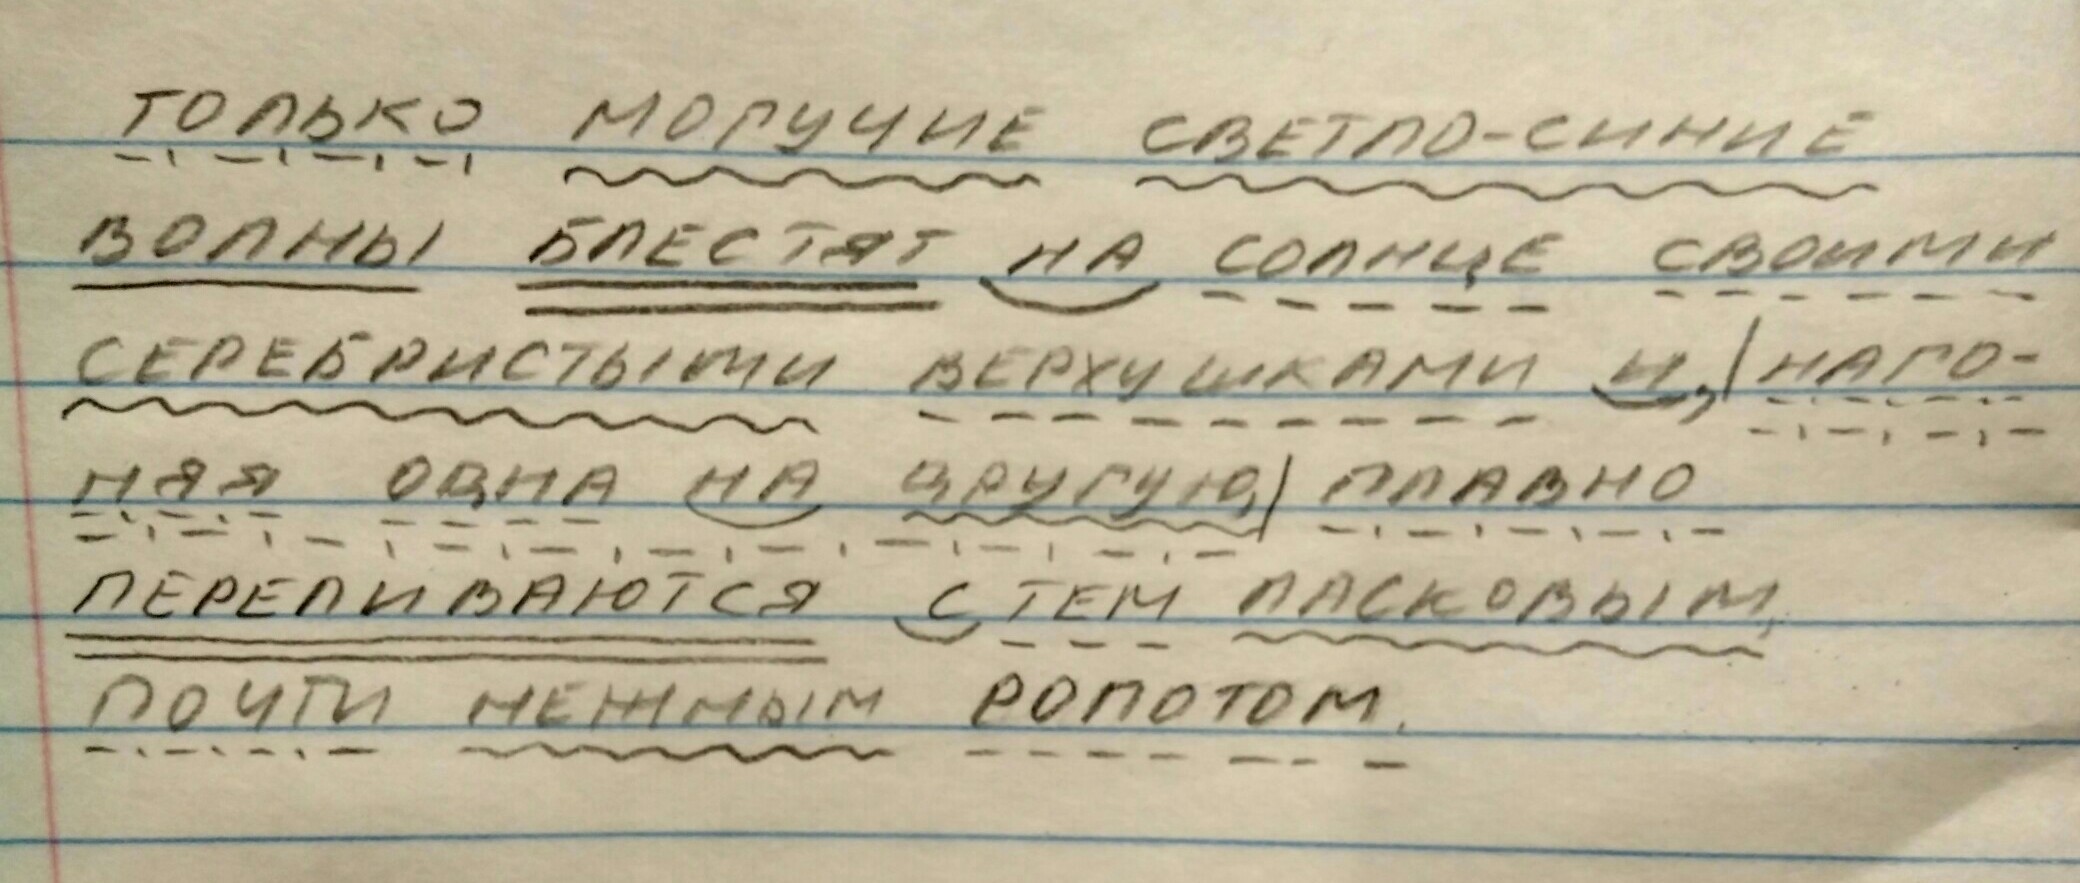 ТОЛЬКО МОГУЧИЕ СВЕТЛО-СИНИЕ
ВОЛНЫ БЛЕСТЯТ НА СОЛНЦЕ СВОИМИ
СЕРЕБРИСТЫМИ ВЕРХУШКАМИ И,/НАГО-
НЯЯ ОДНА НА ДРУГУЮ,/ ПЛАВНО
ПЕРЕЛИВАЮТСЯ С ТЕМ ЛАСКОВЫМ,
ПОЧТИ НЕЖНЫМ РОПОТОМ.